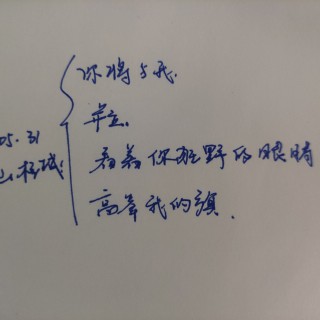 你将与我.
并立.
看着你狂野的眼睛
高举我的旗.
05.31